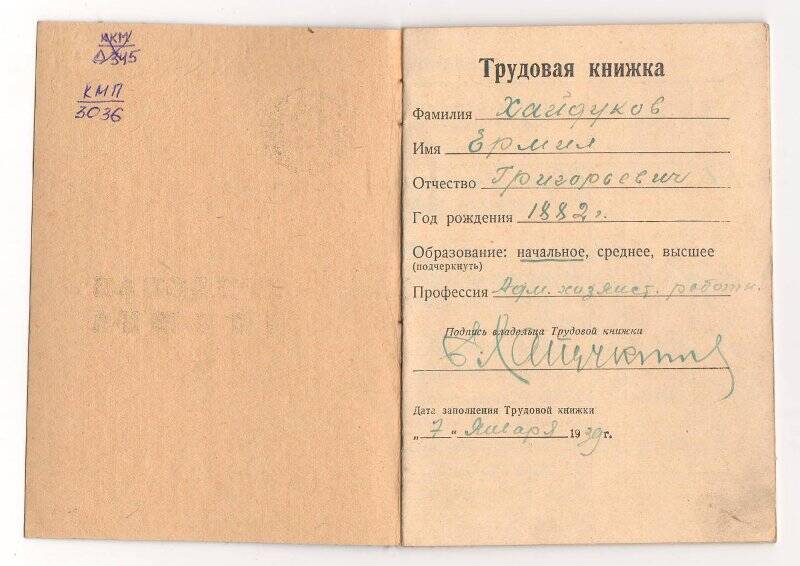 ККМ
А 345
КМП
3036
Трудовая книжка
Фамилия Хайдуков
Имя Ермил
Отчество Григорьевич
Год рождения 1882 г.
Образование: начальное, среднее, высшее
(подчеркнуть)
Профессия Адм. хозяист. работн.
Подпись владельца Трудовой книжки
Дата заполнения Трудовой книжки
„ 7 “ Января 1939 г.